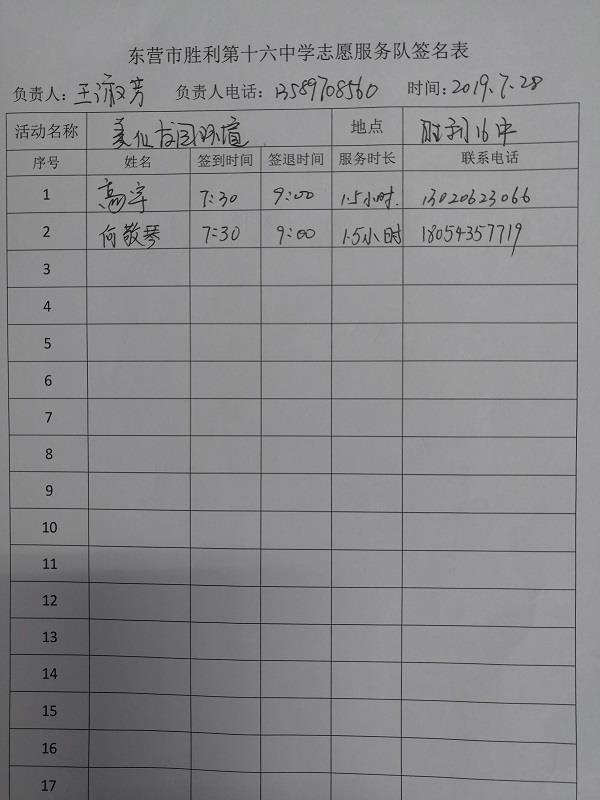 东营市胜利第十六中学志愿服务队签名表
负责人：王淑芳 负责人电话：13589708560 时间：2019.7.28
活动名称 美化校园环境 地点 胜利16中
序号 姓名 签到时间 签退时间 服务时长 联系电话
1 高宇 7:30 9:00 1.5小时. 13020623066
2 何敬琴 7:30 9:00 1.5小时 18054357719
3
4
5
6
7
8
9
10
11
12
13
14
15
16
17